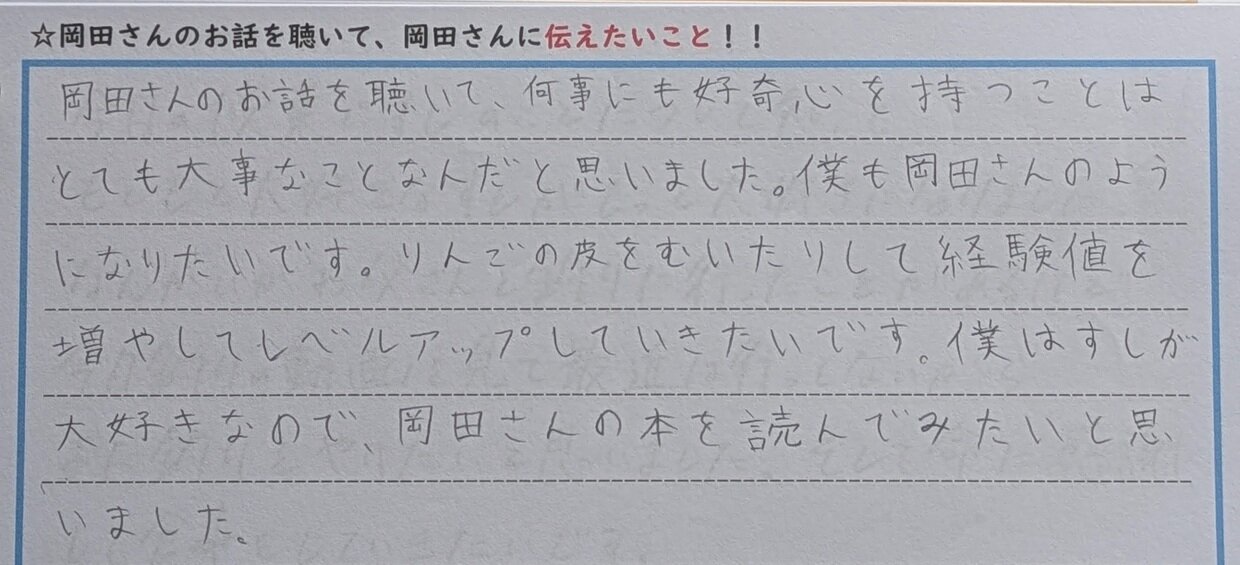 ☆岡田さんのお話を聴いて、岡田さんに伝えたいこと！！
岡田さんのお話を聴いて、何事にも好奇心を持つことは
とても大事なことなんだと思いました。僕も岡田さんのよう
になりたいです。りんごの皮をむいたりして経験値を
増やしてレベルアップしていきたいです。僕はすしが
大好きなので、岡田さんの本を読んでみたいと思
いました。